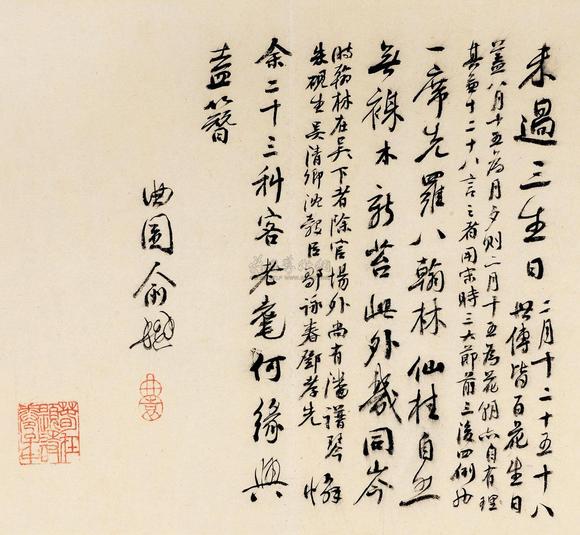 未過三生日二月十二十五十八世傳皆百花生日
蓋八月十五為月夕則二月十五為花朝亦自有理
其兼十二十八言之者用宋時三大節前三後四例也
一席先羅八翰林仙桂自
無祿木新苔此外幾同岑
時翰林在吳下者除官場外尚有潘譜琴
朱硯生吳清卿沈穀臣鄒詠春鄧孝先
余二十三科客老耄何緣與
盍簪
曲園俞樾